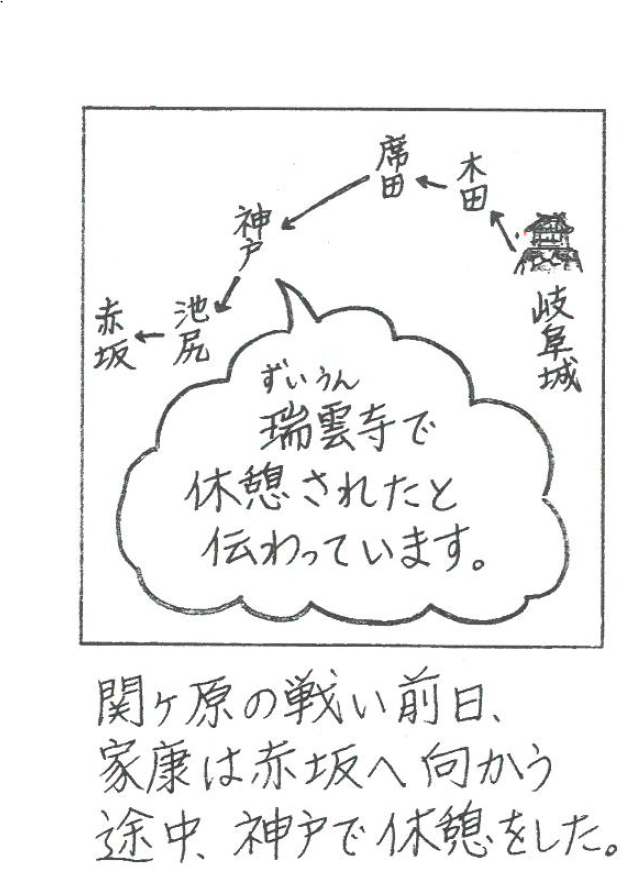 岐阜城
木田
席田
神戸
池尻
赤坂
ずいうん
瑞雲寺で
休憩されたと
伝わっています。
関ヶ原の戦い前日、
家康は赤坂へ向かう
途中、神戸で休憩をした。